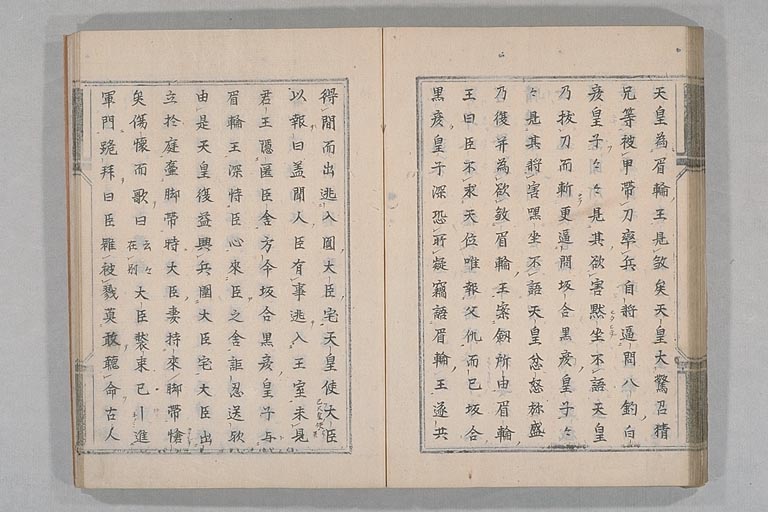 天皇為眉輪王見敘矣天皇大驚召猜
兄等被甲帶刀率兵自將逼問八釣白
疾皇子々々見其欲害黙坐不語天皇
乃拔刀而斬更逼問坂合黒疾皇子々
々見其將害嘿坐不語天皇忿怒弥盛
乃復并為欲敘眉輪王案劾所由眉輪
王曰臣不求天位唯報父仇而已坂合
黒疾皇子深恐所疑竊語眉輪王遂共
得間而出逃入圓大臣宅天皇使大臣
以報曰盖聞人臣有事逃入王室未見
君王隠匿臣舍方今坂合黒疾皇子与
眉輪王深恃臣心來臣之舍詎忍送欤
由是天皇復益興兵圍大臣宅大臣出
立於庭索脚帶時大臣妻持來脚帶愴
矣傷懐而歌曰云々在別大臣裝束已畢進
軍門跪拜曰臣雖被戮莫敢聽命古人